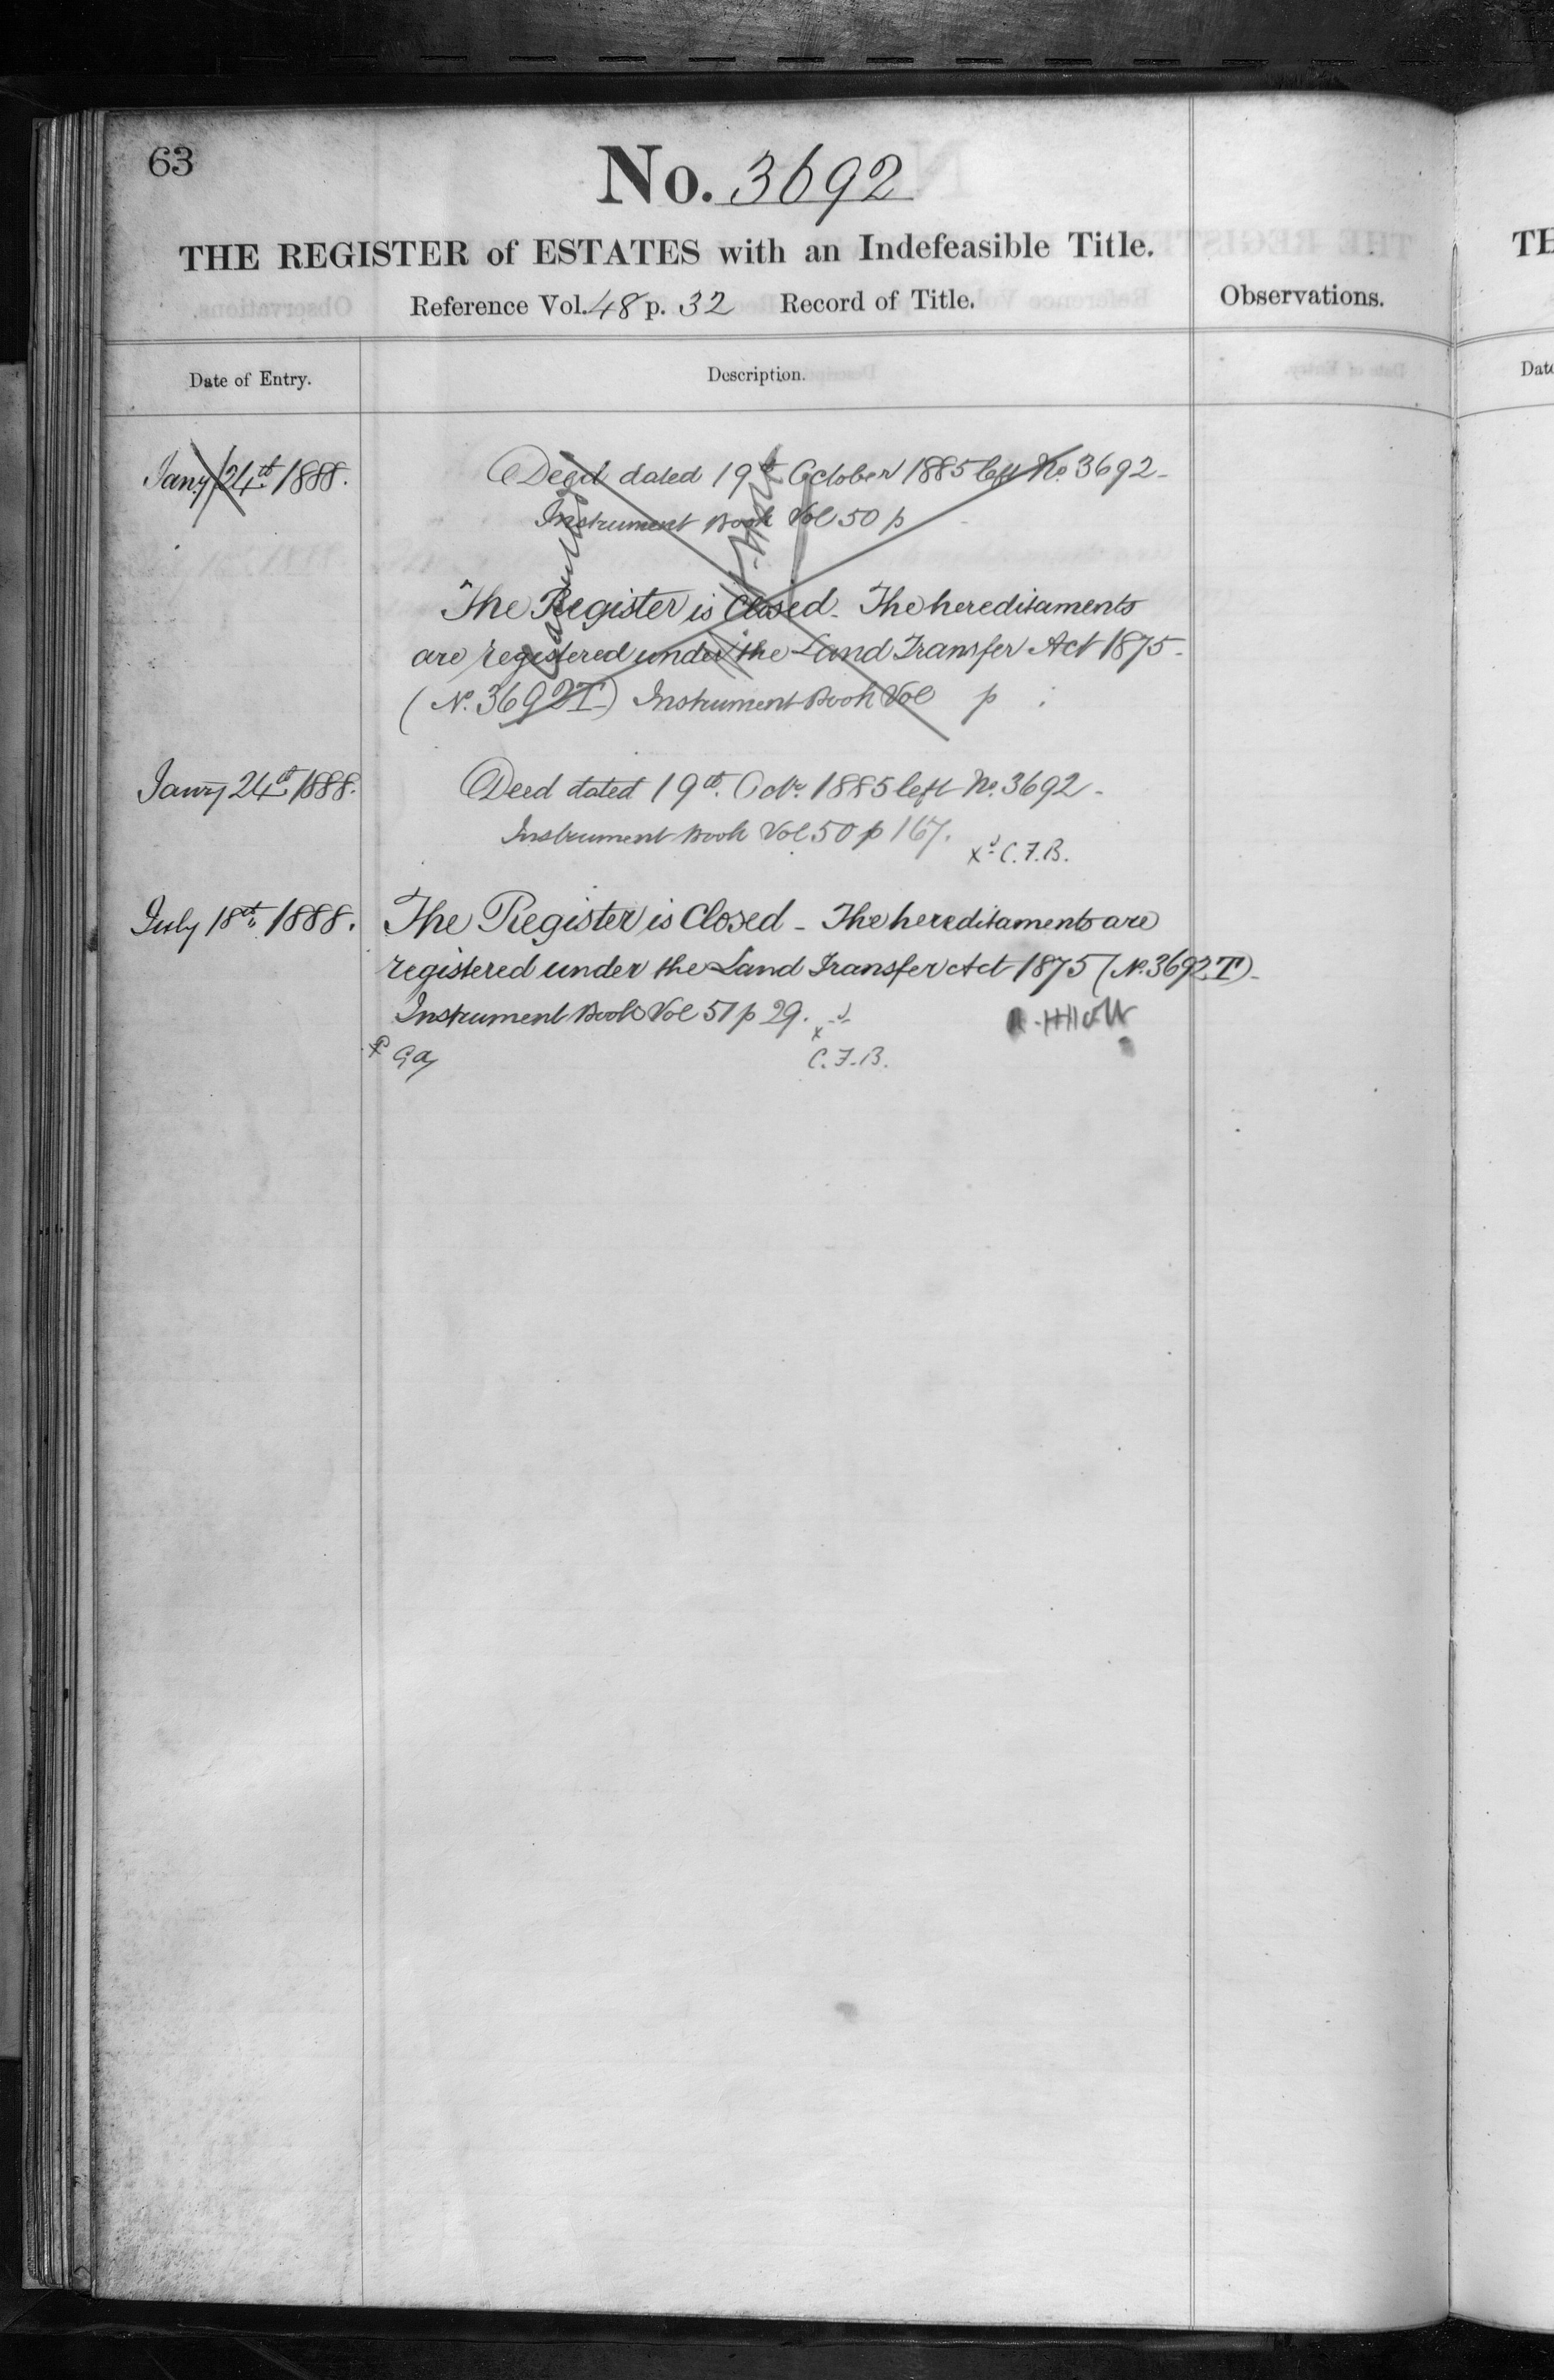 63
No. 3692
THE REGISTER of ESTATES with an Indefeasible Title.
Reference Vol. 48 p. 32 Record of Title.
Observations.
Date of Entry.
Description.
Jany 24th 1888.
Deed dated 19th October 1885 left No. 3692-
Instrument Book Vol 50 p
The Register is Closed. The hereditaments
are registered under the Land Transfer Act 1875-
(No. 3692T) Instrument Book Vol p
Jany 24th 1888.
Deed dated 19th. Octr. 1885 left No. 3692-
Instrument Book Vol 50 p 167.
C.F.B.
July 18th 1888.
The Register is Closed - The hereditaments are
registered under the Land Transfer Act 1875 (No. 3692T)-
Instrument Book Vol 51 p 29.
C.F.B.
TH
Date